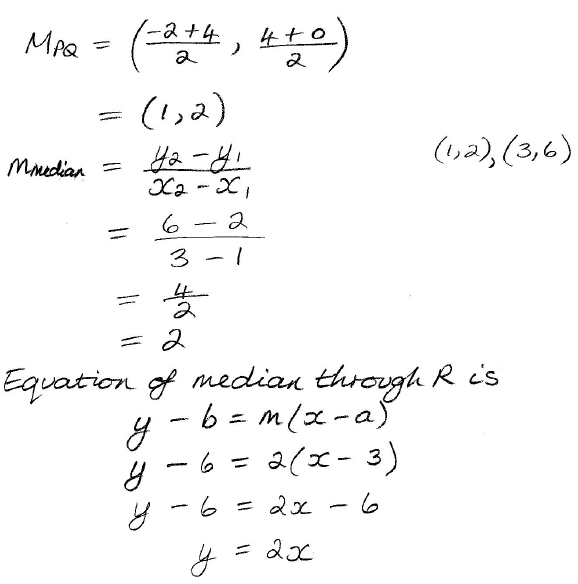 M_PQ = ((-2+4)/2, (4+0)/2)
= (1,2)
m_median = (y₂ - y₁)/(x₂ - x₁)
(1,2), (3,6)
= (6 - 2)/(3 - 1)
= 4/2
= 2
Equation of median through R is
y - b = m(x-a)
y - 6 = 2(x- 3)
y - 6 = 2x - 6
y = 2x